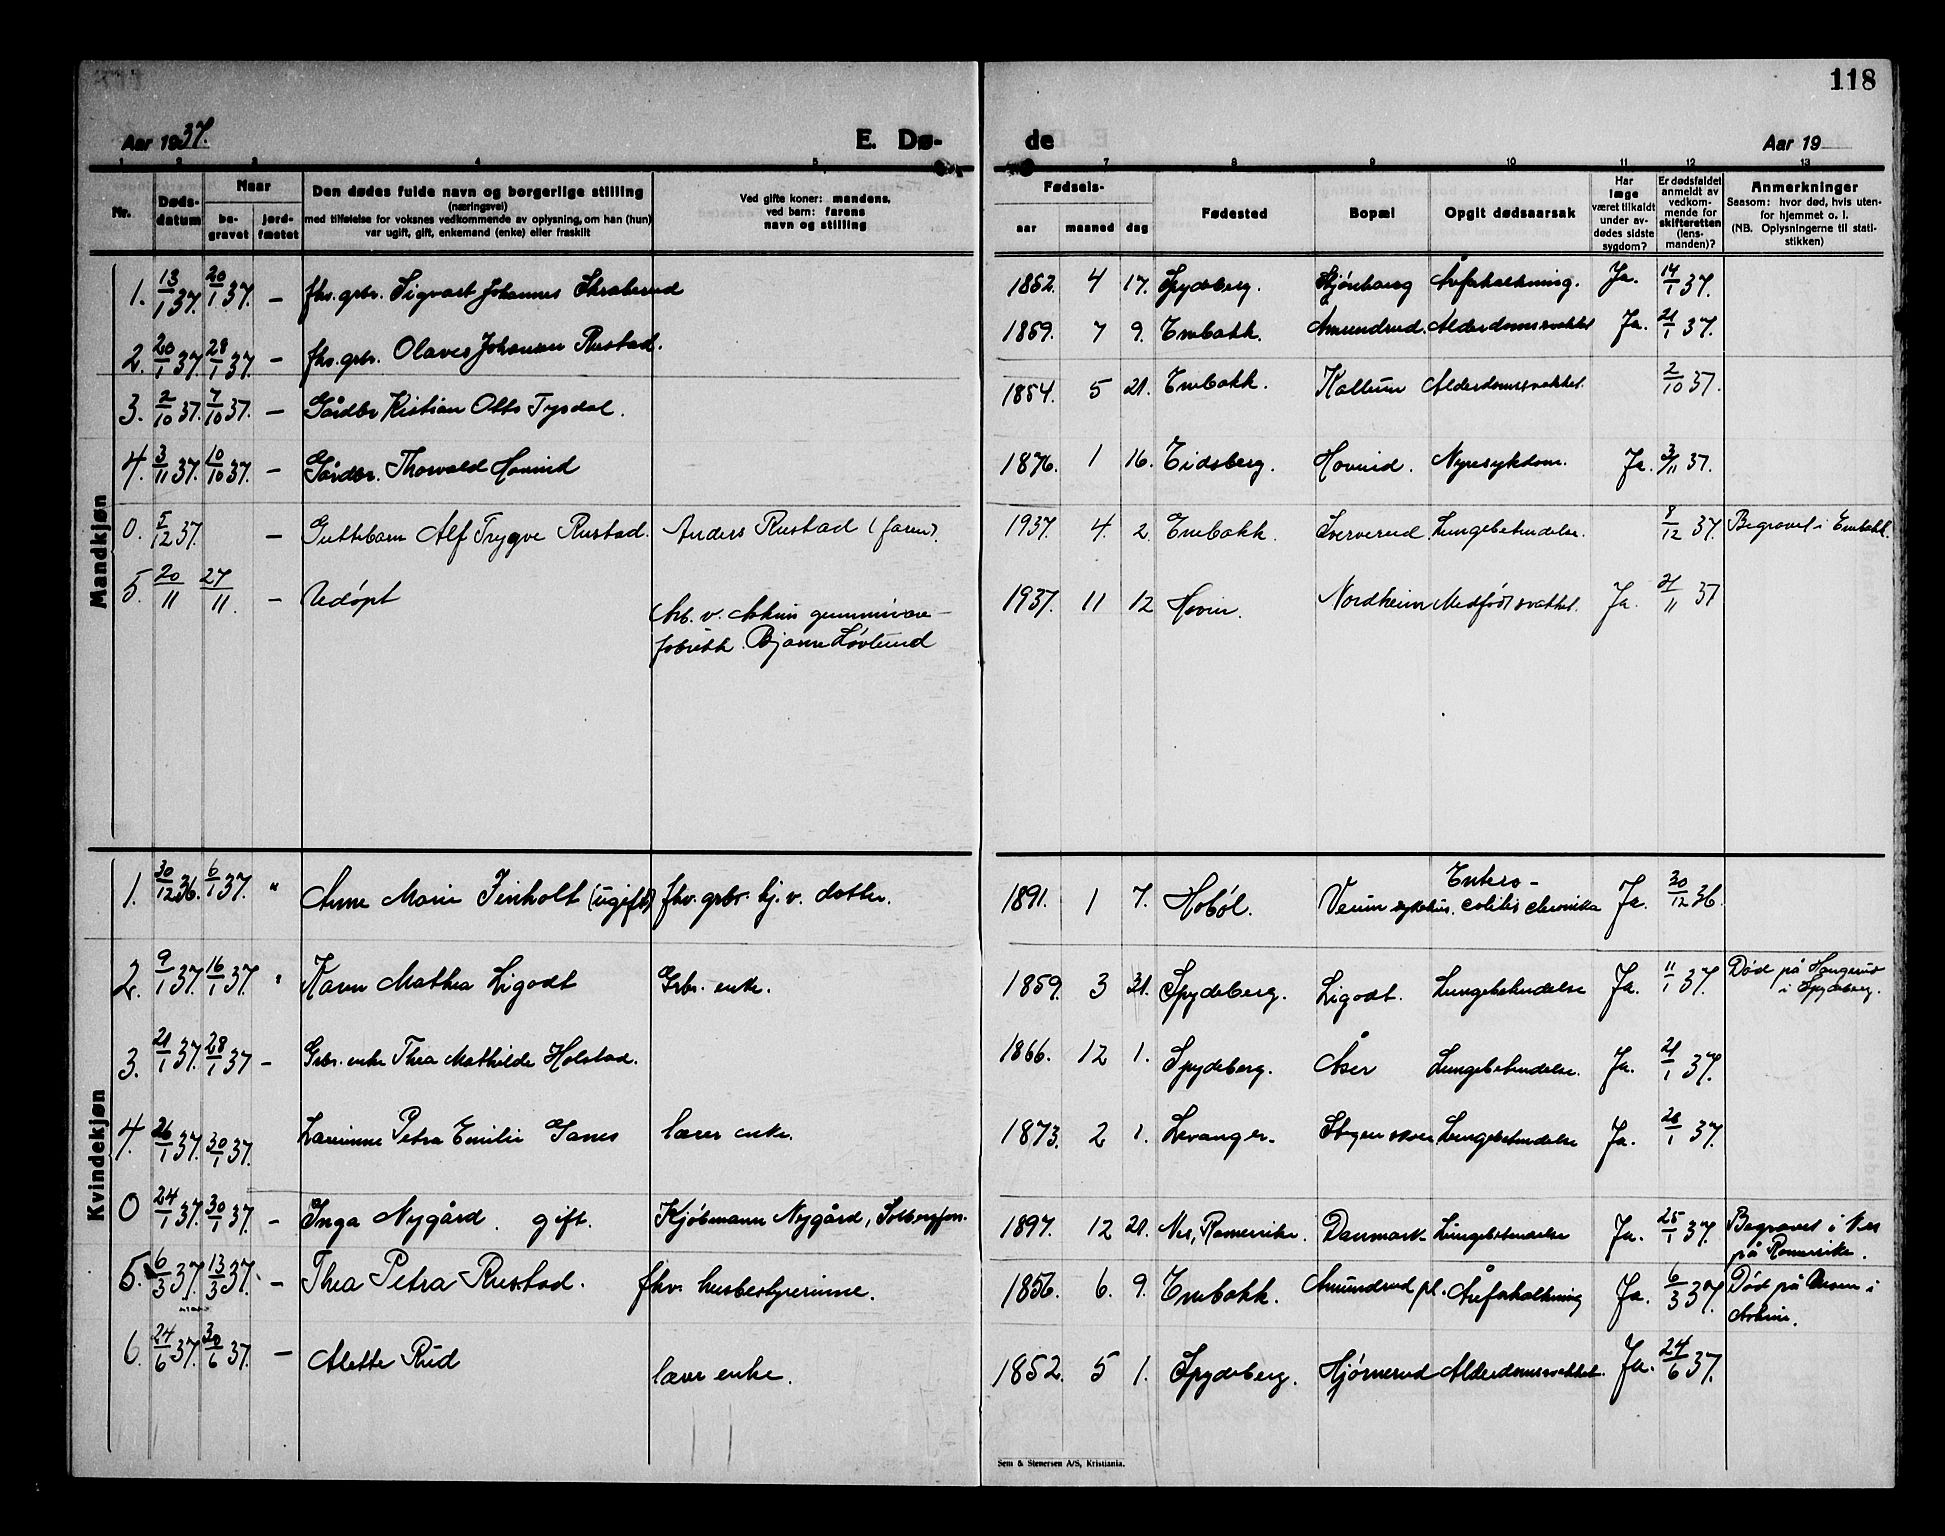 118
Aar 1937.
E. Dø-
de
Aar 19
1 2 3 4 5 7 8 9 10 11 12 13
Nr.
Døds-
datum
Naar
be-
gravet
jord-
fæstet
Den dødes fulde navn og borgerlige stilling
(næringsvei)
med tilføielse for voksnes vedkommende av oplysning, om han (hun)
var ugift, gift, enkemand (enke) eller fraskilt
Ved gifte koner: mandens,
ved barn: farens
navn og stilling
Fødsels-
aar maaned dag
Fødested
Bopæl
Opgit dødsaarsak
Har
læge
været tilkaldt
under av-
dødes sidste
sygdom?
Er dødsfaldet
anmeldt av
vedkom-
mende for
skifteretten
(lens-
manden)?
Anmerkninger
Saasom: hvor død, hvis uten-
for hjemmet o. l.
(NB. Oplysningerne til stati-
stikken)
Mandkjøn
1. 13/1 37. 20/1 37. – fhv. grbr. Sigvart Johannes 1852. 4 17. Spydeberg. Åreforkalkning. Ja. 14/1 37.
2. 20/1 37. 28/1 37. – fhv. grbr. Olaves Johansen Rustad. 1859. 7 9. Enebakk. Amundrud. Alderdomssvakhet Ja. 21/1 37.
3. 2/10 37. 7/10 37. – Gårdbr Kristian Otto Tysdal. 1854. 5 21. Enebakk. Kallum Alderdomssvakhet. 2/10 37.
4. 3/11 37. 10/10 37. – Gårdbr. Thorvald Hovind 1876. 1 16. Eidsberg. Hovind. Nyresykdom. Ja. 3/11 37.
0. 5/12 37. – Guttebarn Alf Trygve Rustad. Anders Rustad (faren). 1937. 4. 2. Enebakk. Sververud Lungebetendelse. 8/12 37. Begravet i Enebakk.
5. 20/11 27/11. – Udøpt 1937. 11 12 Hovin. Nordheim Medfødt svakhet. Ja. 21/11 37
Arb. v. Askim gummivare-
fabrikk. Bjarne Løvlund
Kvindekjøn
1. 30/12 36. 6/1 37. " Anne Marie (ugift) fhv. grbr. hj. v. datter. 1891. 1 7. Hobøl. sykehus. Entero-
colitis chronika Ja. 30/12 36.
2. 9/1 37. 16/1 37. " Karen Mathea Ligodt Grbr. enke. 1859. 3 31. Spydeberg. Ligodt. Lungebetendelse Ja. 11/1 37. Død på Haugerud
i Spydeberg.
3. 21/1 37. 28/1 37 – Grbr. enke Thea Mathilde Holstad. 1866. 12 1. Spydeberg. Åser Lungebetendelse. Ja. 21/1 37.
4. 26/1 37. 30/1 37. Petra Emilie lærer enke. 1873. 2 1. Levanger. Lungebetendelse Ja. 28/1 37.
0 24/1 37. 30/1 37. – Inga Nygård. gift. Kjøbmann Nygård, 1897. 12 21. Nes, Romerrike. Danmark Lungebetendelse Ja. 25/1 37. Begravet i Nes
på Romerrike.
5. 6/3 37. 13/3 37. – Thea Petra Rustad. fhv. husbestyrerinne. 1856. 6. 9. Enebakk. Amundrud pl. Åreforkalkning Ja. 6/3 37. Død på i
Askim.
6. 24/6 37. 30/6 37. – Alette Rud lærer enke. 1852. 5 1. Spydeberg. Hjørnerud Alderdomssvakhet. Ja. 24/6 37.
Sem & Stenersen A/S, Kristiania.